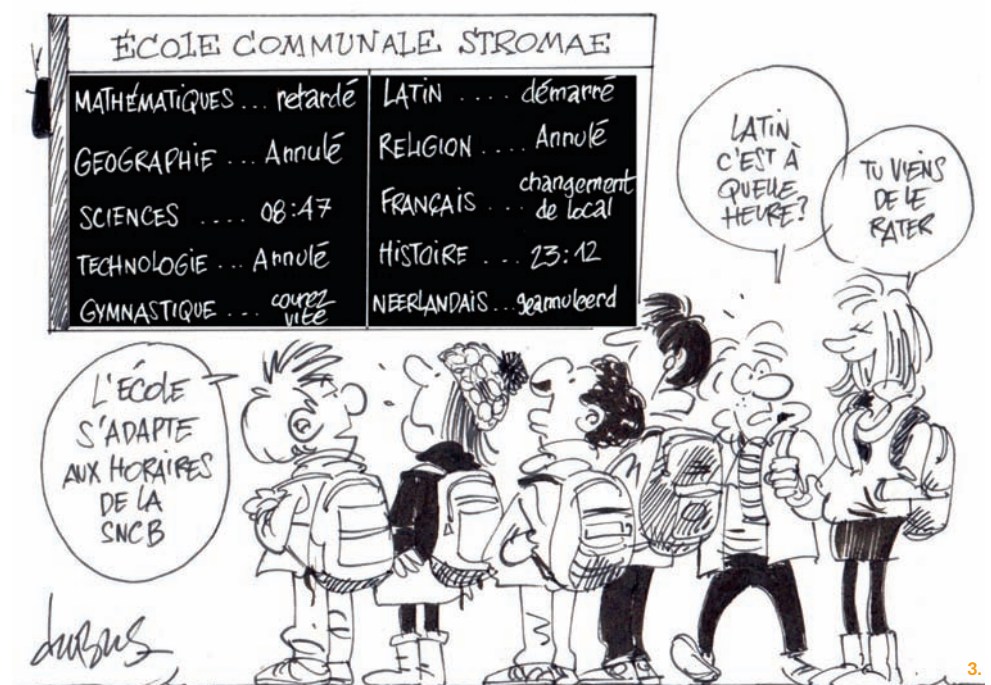 ÉCOLE COMMUNALE STROMAE
MATHÉMATIQUES... retardé
GEOGRAPHIE... Annulé
SCIENCES .... 08:47
TECHNOLOGIE... Annulé
GYMNASTIQUE... courez
vite
LATIN .... démarré
RELIGION .... Annulé
FRANÇAIS ... changement
de local
HISTOIRE .... 23:12
NEERLANDAIS... geannuleerd
LATIN
C'EST À
QUELLE
HEURE?
TU VIENS
DE LE
RATER
L'ÉCOLE
S'ADAPTE
AUX HORAIRES
DE LA
SNCB
dubus
3.